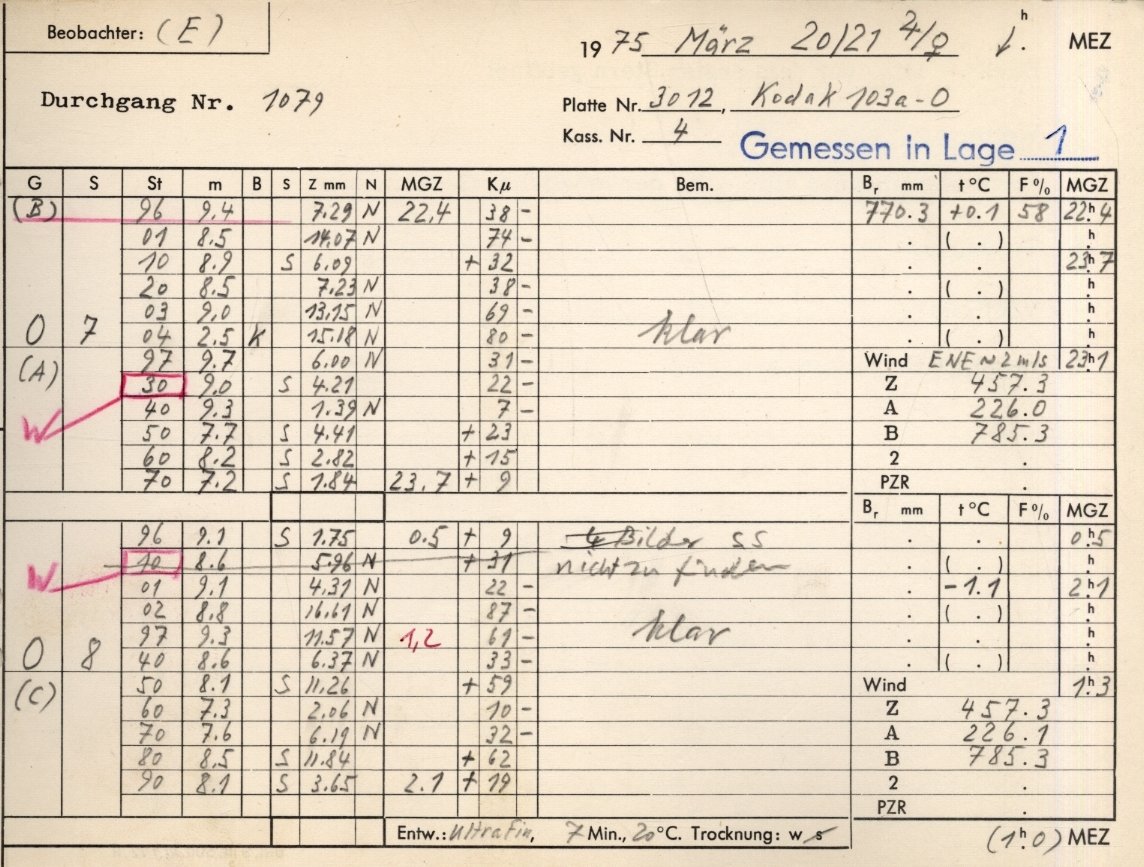 Beobachter: (E)
1975 März 20/21 ♃/♀ h . MEZ
Durchgang Nr. 1079
Platte Nr. 3012, Kodak 103a-O
Kass. Nr. 4
Gemessen in Lage 1
G S St m B S Z mm N MGZ Kμ Bem. Br mm t °C F% MGZ
(B) 96 9.4 7.29 N 22,4 38 - 770.3 +0.1 58 22h4
01 8.5 14.07 N 74 - . ( . ) h.
10 8.9 S 6.09 + 32 . . 23h7
20 8.5 7.23 N 38 - . ( . ) h.
03 9.0 13.15 N 69 - . . h.
0 7 04 2.5 K 15.18 N 80 - klar . ( . ) h.
(A) 97 9.7 6.00 N 31 - Wind ENE ~ 2 m/s 23h1
30 9.0 S 4.21 22 - Z 457.3
W 40 9.3 1.39 N 7 - A 226.0
50 7.7 S 4.41 + 23 B 785.3
60 8.2 S 2.82 + 15 2 .
70 7.2 S 1.84 23.7 + 9 PZR .
Br mm t °C F% MGZ
96 9.1 S 1.75 0.5 + 9 Bilder ss . . 0h5
W 10 8.6 5.96 N + 31 nicht zu finden . ( . ) h.
01 9.1 4.31 N 22 - . -1.1 2h1
02 8.8 16.61 N 87 - . ( . ) h.
97 9.3 11.57 N 1,2 61 - klar . . h.
0 8 40 8.6 6.37 N 33 - . ( . ) h.
(C) 50 8.1 S 11.26 + 59 Wind 1h3
60 7.3 2.06 N 10 - Z 457.3
70 7.6 6.19 N 32 - A 226.1
80 8.5 S 11.84 + 62 B 785.3
90 8.1 S 3.65 2.1 + 19 2 .
PZR .
Entw.: Ultrafin, 7 Min., 20°C. Trocknung: w s (1h.0) MEZ